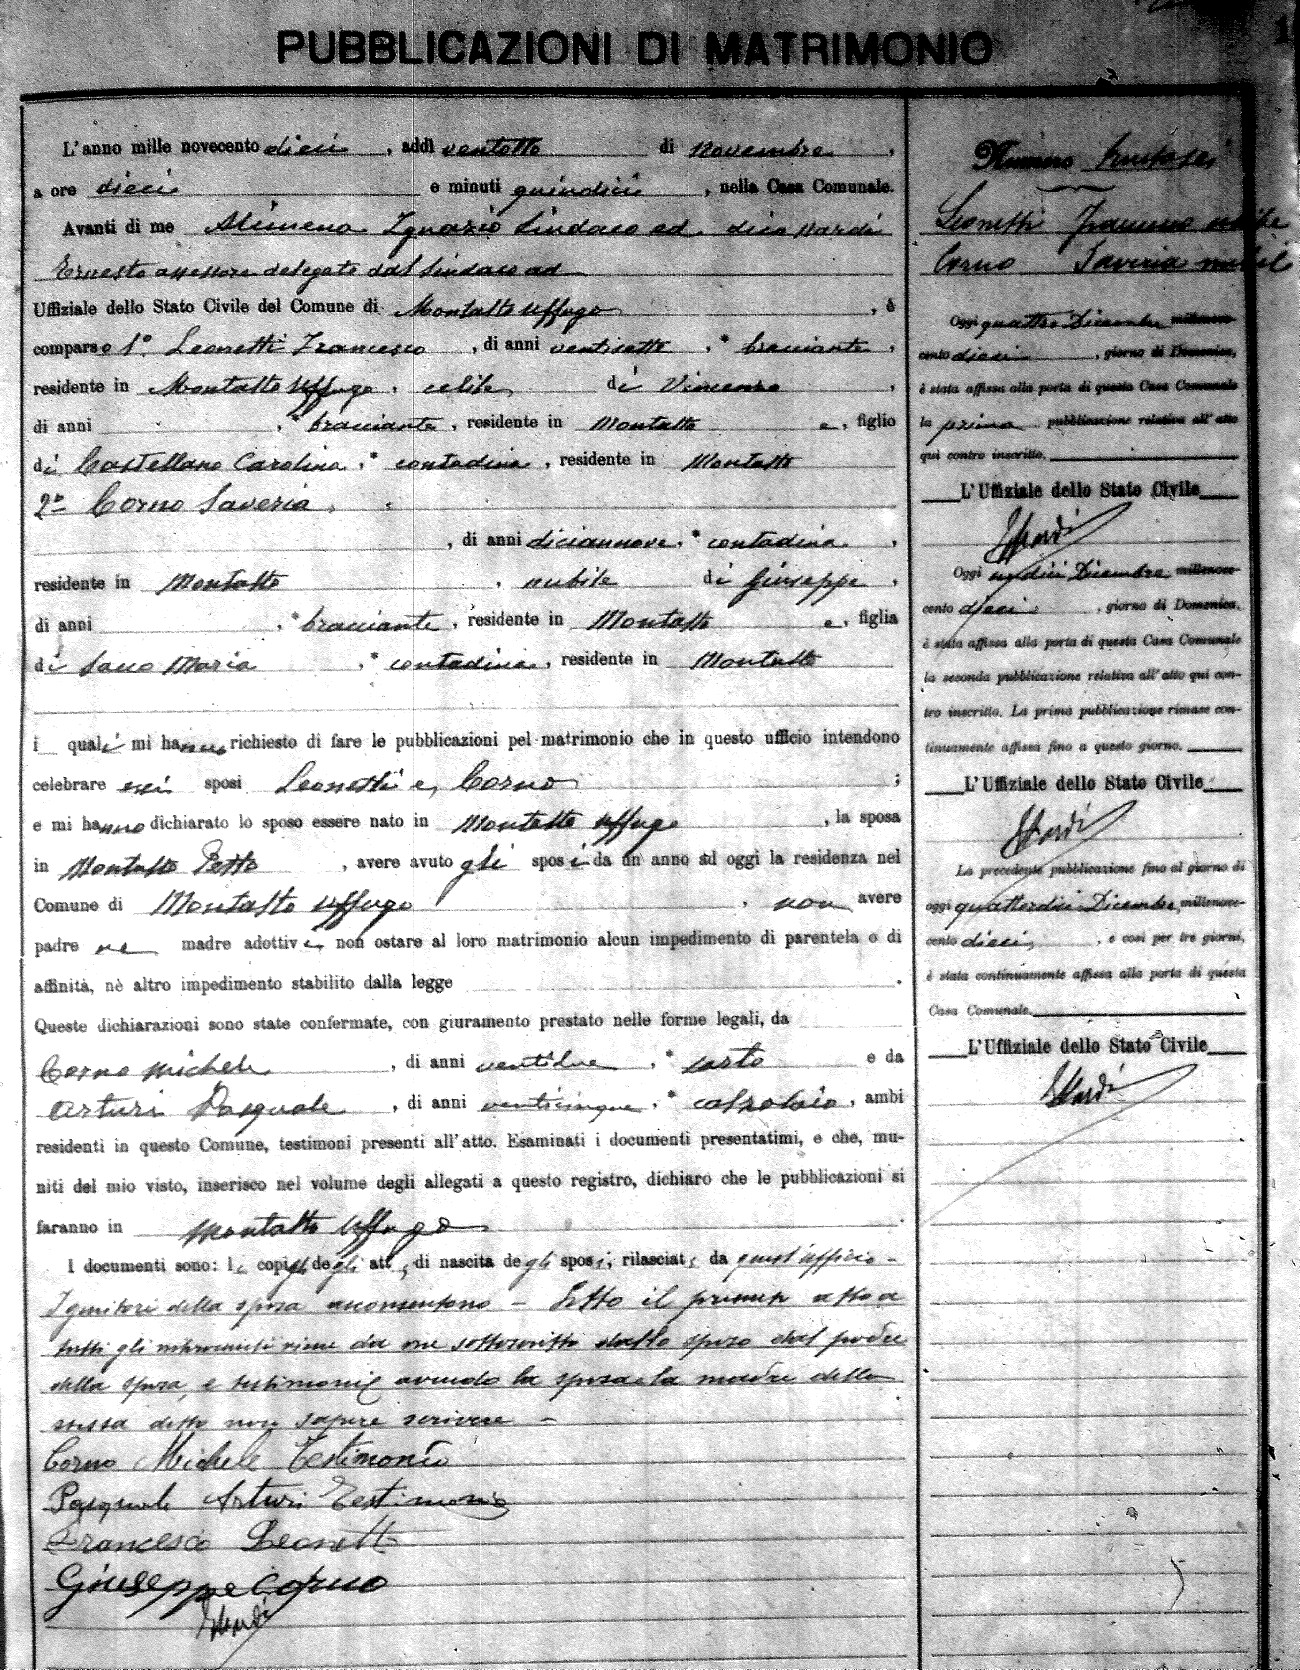 PUBBLICAZIONI DI MATRIMONIO
L'anno mille novecento dieci, addì ventotto di novembre,
a ore dieci e minuti quindici, nella Casa Comunale.
Avanti di me Alimena Ignazio Sindaco ed dico Nardi
Ernesto assessore delegato dal Sindaco ad
Uffiziale dello Stato Civile del Comune di Montalto Uffugo, è
comparso 1º Leonetti Francesco, di anni ventisette, * bracciante,
residente in Montalto Uffugo, celibe di Vincenzo,
di anni , * bracciante, residente in Montalto e, figlio
di Castellano Carolina, * contadina, residente in Montalto
2º Corno Saveria,
, di anni diciannove, * contadina,
residente in Montalto, nubile di Giuseppe,
di anni , * bracciante, residente in Montalto e, figlia
di Sacco Maria, * contadina, residente in Montalto
i quali mi hanno richiesto di fare le pubblicazioni pel matrimonio che in questo ufficio intendono
celebrare essi sposi Leonetti e Corno ;
e mi hanno dichiarato lo sposo essere nato in Montalto Uffugo, la sposa
in Montalto Detto, avere avuto gli sposi da un anno ad oggi la residenza nel
Comune di Montalto Uffugo, non avere
padre ne madre adottivi, non ostare al loro matrimonio alcun impedimento di parentela o di
affinità, nè altro impedimento stabilito dalla legge .
Queste dichiarazioni sono state confermate, con giuramento prestato nelle forme legali, da
Corno Michele, di anni ventidue, * sarto e da
Arturi Pasquale, di anni venticinque, * calzolaio, ambi
residenti in questo Comune, testimoni presenti all'atto. Esaminati i documenti presentatimi, e che, mu-
niti del mio visto, inserisco nel volume degli allegati a questo registro, dichiaro che le pubblicazioni si
faranno in Montalto Uffugo
I documenti sono: le copie degli atti di nascita degli sposi, rilasciate da quest'ufficio -
I genitori della sposa acconsentono - Letto il presente atto a
tutti gli intervenuti viene da me sottoscritto dallo sposo dal padre
della sposa, e testimoni avendo la sposa e la madre della
stessa detto non sapere scrivere -
Corno Michele Testimonio
Pasquale Arturi Testimonio
Francesco Leonetti
Giuseppe Corno
ENardi
Numero
Leonetti Francesco
Corno Saveria
Oggi quattro Dicembre millenove-
cento dieci, giorno di Domenica,
è stata affissa alla porta di questa Casa Comunale
la prima pubblicazione relativa all'atto
qui contro inscritto.
L'Uffiziale dello Stato Civile
ENardi
Oggi undici Dicembre millenove-
cento dieci, giorno di Domenica,
è stata affissa alla porta di questa Casa Comunale
la seconda pubblicazione relativa all'atto qui con-
tro inscritto. La prima pubblicazione rimase con-
tinuamente affissa fino a questo giorno.
L'Uffiziale dello Stato Civile
ENardi
La precedente pubblicazione fino al giorno di
oggi quattordici Dicembre, millenove-
cento dieci, e così per tre giorni,
è stata continuamente affissa alla porta di questa
Casa Comunale.
L'Uffiziale dello Stato Civile
ENardi